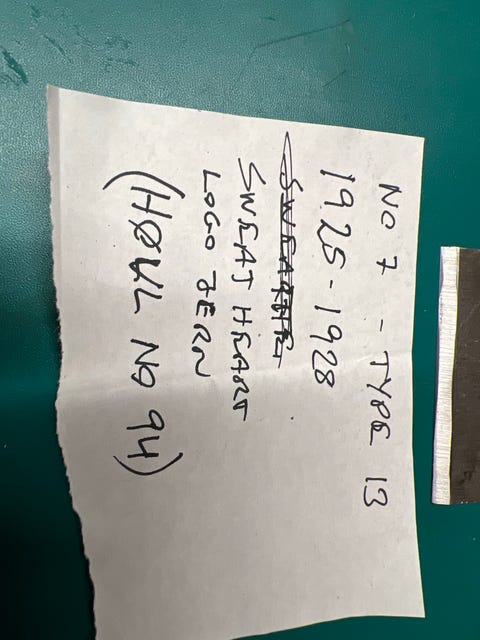 NO 7 - TYPE 13
1925-1928
SWEAT HEART
LOGO JERN
(HØVL NO 94)